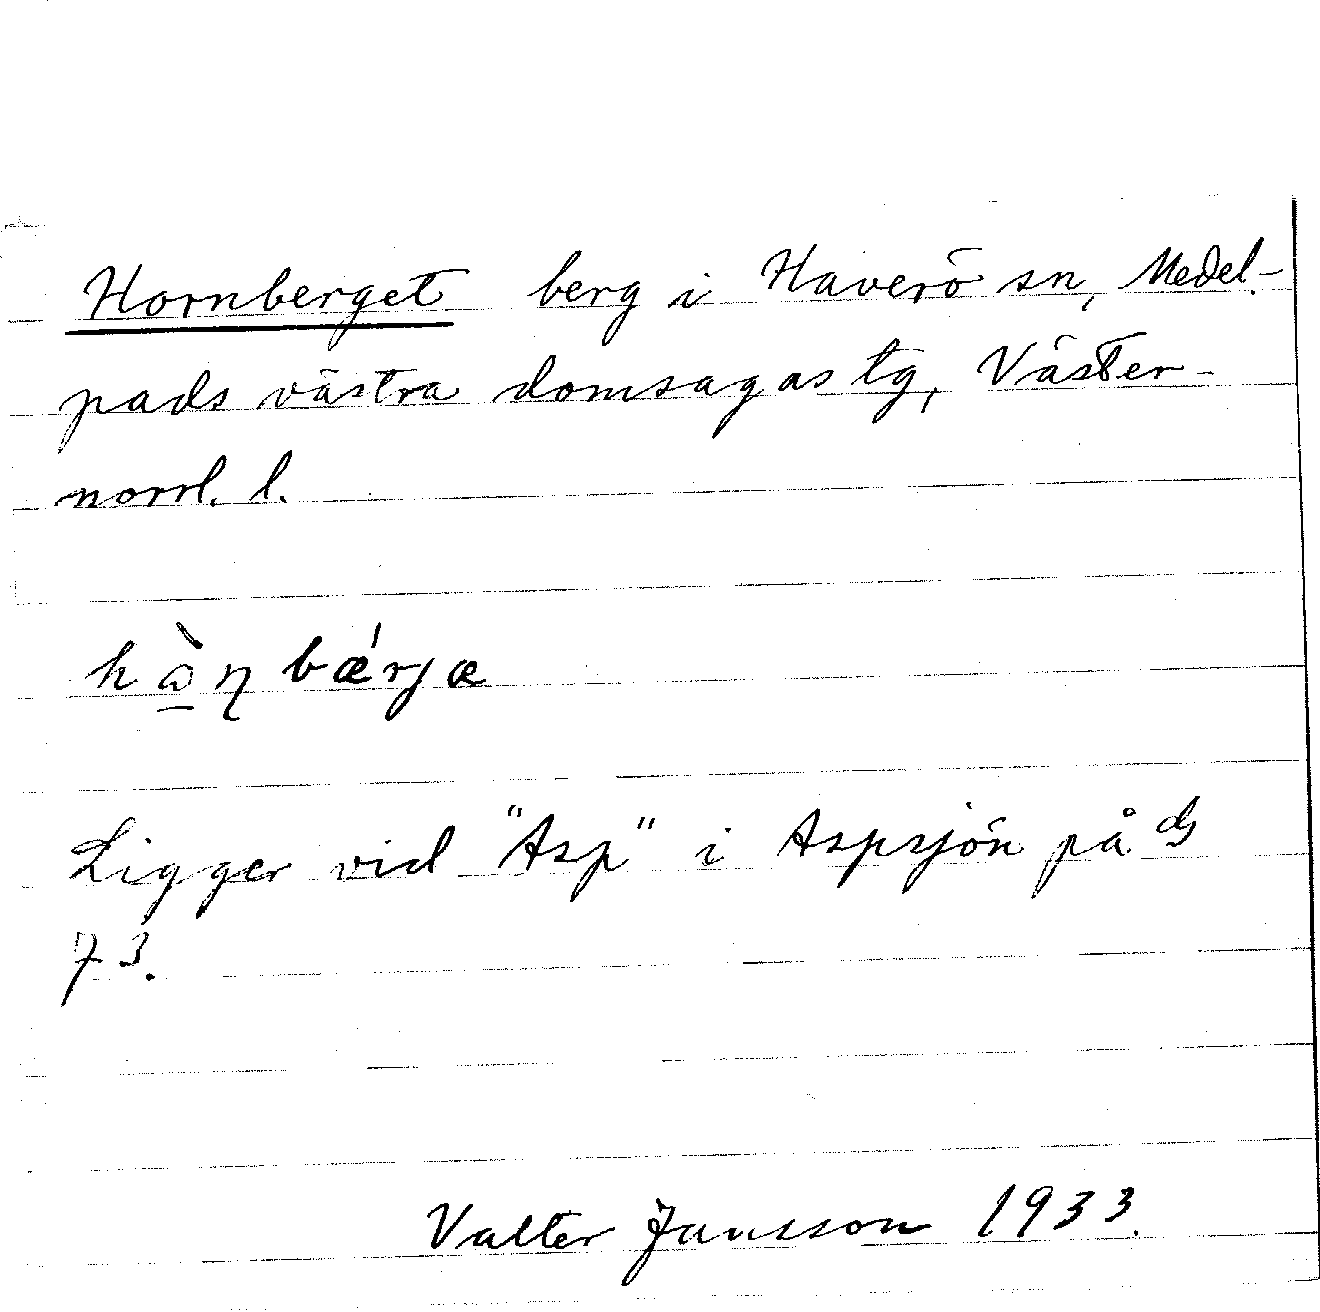 Hornberget berg i Haverö sn, Medel-
pads västra domsagas tg, Väster-
norrl. l.
hàɳbǽrjæ
Ligger vid "Asp" i Aspsjön på
73.
Valter Jansson 1933.